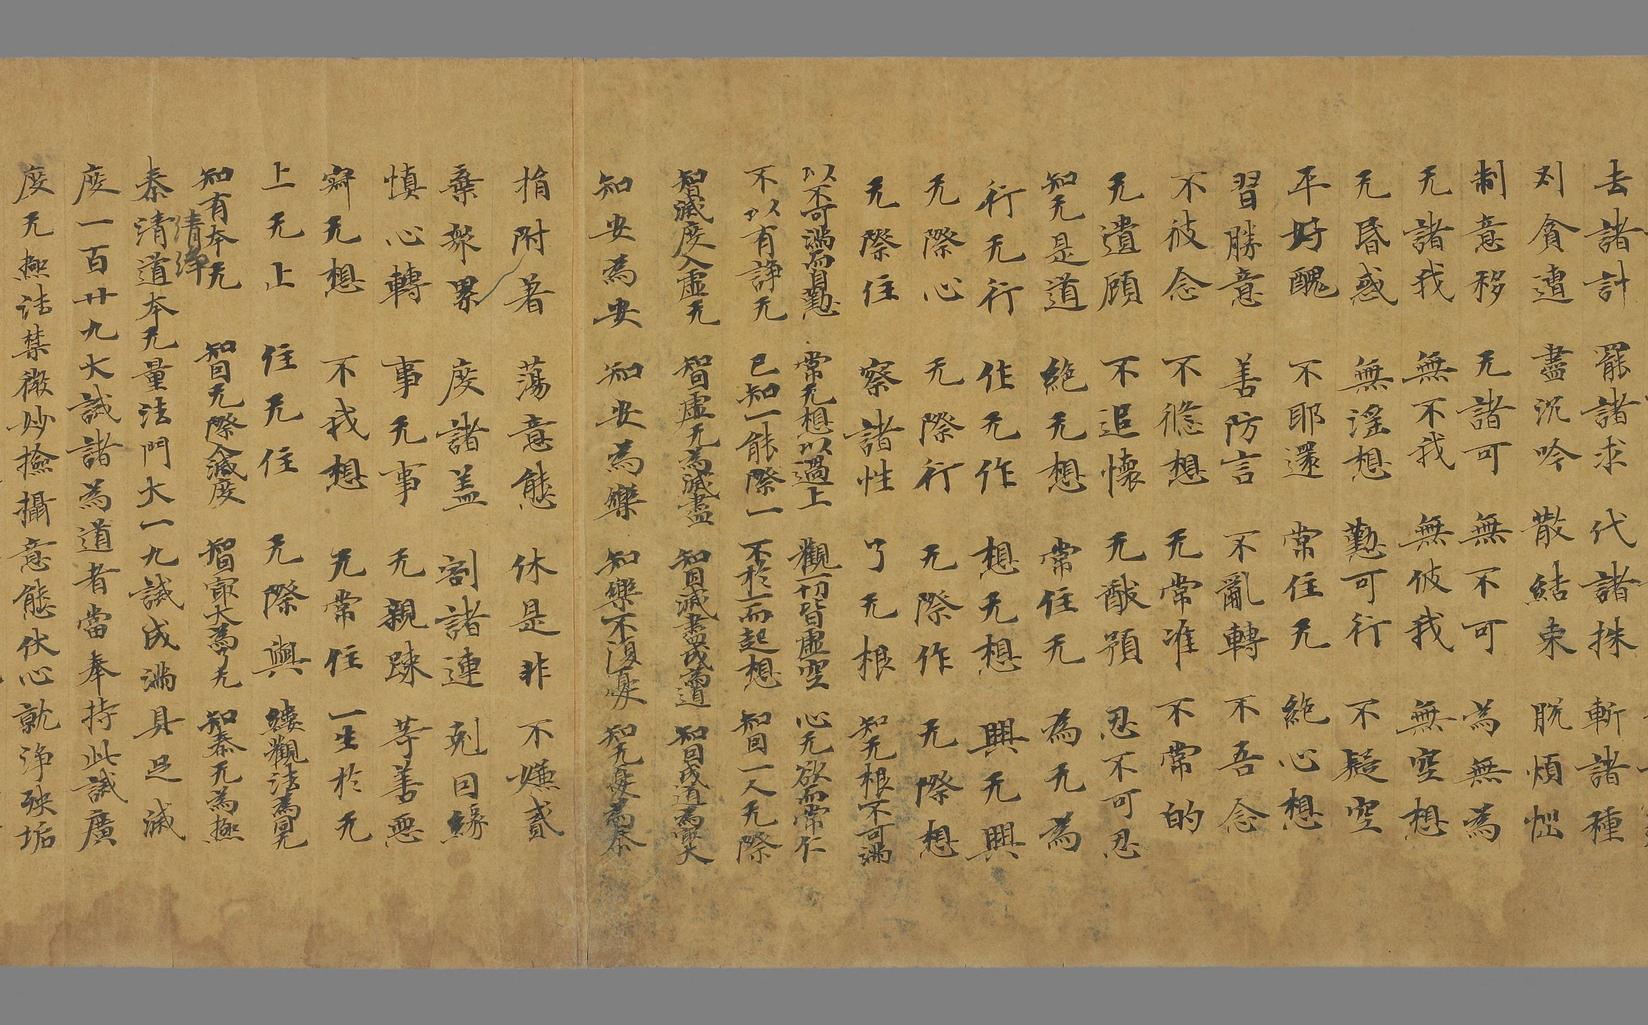 去諸計 罷諸求 代諸株 斬諸種
刈貪遭 盡沉吟 散結束 脱煩惱
制意移 无諸可 無不可 為無為
无諸我 無不我 無彼我 無空想
无昏惑 無滛想 懃可行 不疑空
平好醜 不耶還 常住无 絶心想
習勝意 善防言 不亂轉 不吾念
不彼念 不慘想 无常准 不常的
无遺顧 不追懷 无酨預 忍不可忍
知无是道 絶无想 常住无 為无為
行无行 作无作 想无想 興无興
无際心 无際行 无際作 无際想
无際住 察諸性 了无根 知无根不可滿
以不可滿而自懃 常无想以過上 觀一切皆虛空 心无欲而常仁
不以有諍无 已知一能際一 不於一而起想 知回一人无際
智滅度入虛无 智虛无為滅盡 知回滅盡或為道 知回或道為寂大
知安為安 知安為樂 知樂不復憂 知无憂為本
捐附著 蕩意態 休是非 不嫌貳
棄眾累 度諸盖 割諸連 剋因緣
慎心轉 事无事 无親踈 等善惡
寂无想 不我想 无常住 一生於无
上无上 住无住 无際與 縷觀法為冥无
知有本无 知无際人滅度 智寂大為了无 知泰无為極
泰清道本无量法門大一九誡成滿具足滅
清淨
度一百廿九大誡諸為道者當奉持此誡廣
度无極法禁微妙撿攝意態伏心就淨殃垢